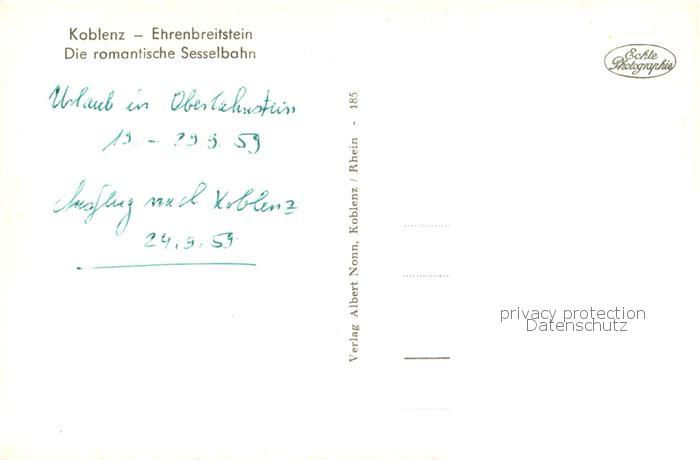 Koblenz – Ehrenbreitstein
Die romantische Sesselbahn
Echte
Photographie
Urlaub in Oberlahnstein
19. – 29. 9. 59
Ausflug nach Koblenz
24. 9. 59
Verlag Albert Nonn, Koblenz / Rhein - 185
privacy protection
Datenschutz